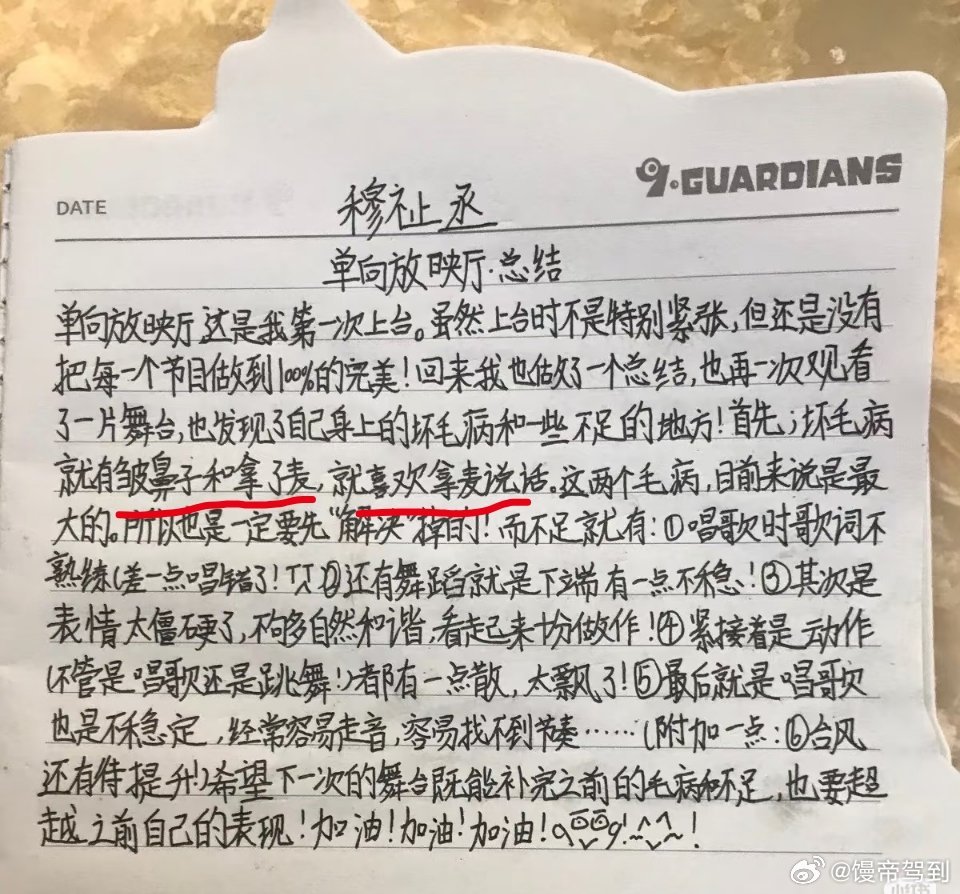 9·GUARDIANS
DATE 穆祉丞
单向放映厅·总结
单向放映厅,这是我第一次上台。虽然上台时不是特别紧张,但还是没有
把每一个节目做到100%的完美!回来我也做了一个总结,也再一次观看
了一片舞台,也发现了自己身上的坏毛病和一些不足的地方!首先;坏毛病
就有皱鼻子和拿了麦,就喜欢拿麦说话。这两个毛病,目前来说是最
大的。所以也是一定要先“解决”掉的!而不足就有:①唱歌时歌词不
熟练(差一点唱错了!TT)②还有舞蹈就是下端有一点不稳!③其次是
表情太僵硬了,不够多自然和谐,看起来十分做作!④紧接着是动作
(不管是唱歌还是跳舞!)都有一点散,太飘了!⑤最后就是唱歌
也是不稳定,经常容易走音,容易找不到节奏……(附加一点:⑥台风
还有待提升!)希望下一次的舞台既能补完之前的毛病和不足,也要超
越之前自己的表现!加油!加油!加油!
@馒帝驾到
小红书